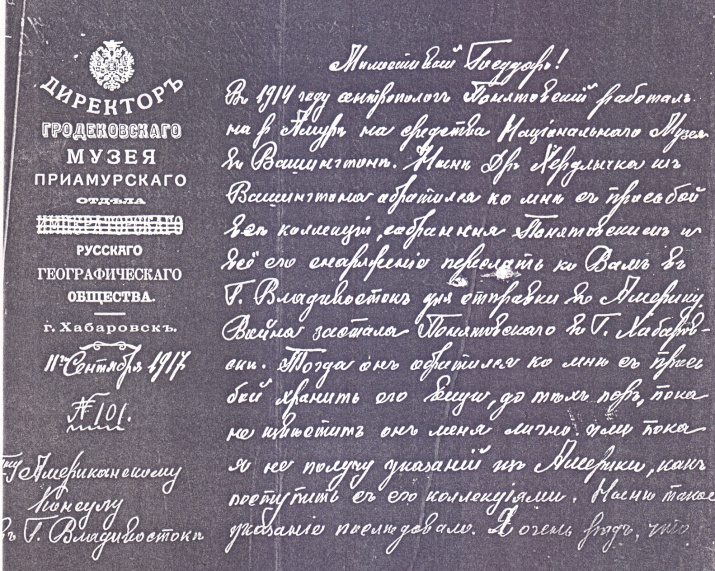 ДИРЕКТОРЪ
ГРОДЕКОВСКАГО
МУЗЕЯ
ПРИАМУРСКАГО
ОТДѢЛА
ИМПЕРАТОРСКАГО
РУССКАГО
ГЕОГРАФИЧЕСКАГО
ОБЩЕСТВА.
г. Хабаровскъ.
11го Сентября 1917
№ 101.
Американскому
Консулу
въ Г. Владивостокѣ
Милостивый Государь!
Въ 1914 году антропологъ Понятовскій работалъ
на р Амурѣ на средства Національнаго Музея
въ Вашингтонѣ. Нынѣ Дръ Хердличка изъ
Вашингтона обратился ко мнѣ съ просьбой
всѣ коллекціи, собранныя Понятовскимъ и
всё его снаряженіе переслать ко Вамъ въ
Г. Владивостокъ для отправки въ Америку.
Война застала Понятовского въ Г. Хабаров-
скѣ. Тогда онъ обратился ко мнѣ съ прось-
бой хранить его вещи, до тѣхъ поръ, пока
не извѣститъ онъ меня лично или пока
я не получу указаній изъ Америки, какъ
поступить съ его коллекціями. Нынѣ такое
указаніе послѣдовало. Я очень радъ, что